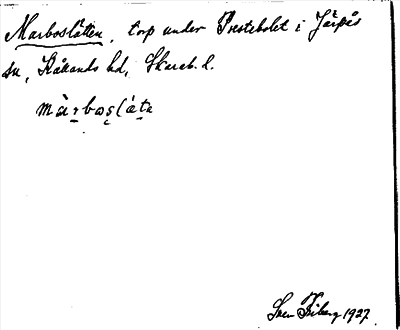 Marboslätten, torp under Prestebolet i Järpås
sn, Kållands hd, Skarab. l.
màrbosláta
Sven Friberg 1927